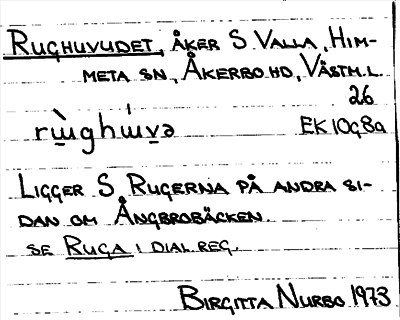 RUGHUVUDET, ÅKER S VALLA, HIM-
META SN, ÅKERBO HD, VÄSTM.L.
26
rɯ̀ghɯ́və EK 10g8a
LIGGER S RUGERNA PÅ ANDRA SI-
DAN OM ÅNGBROBÄCKEN.
SE RUGA I DIAL.REG.
BIRGITTA NURBO 1973